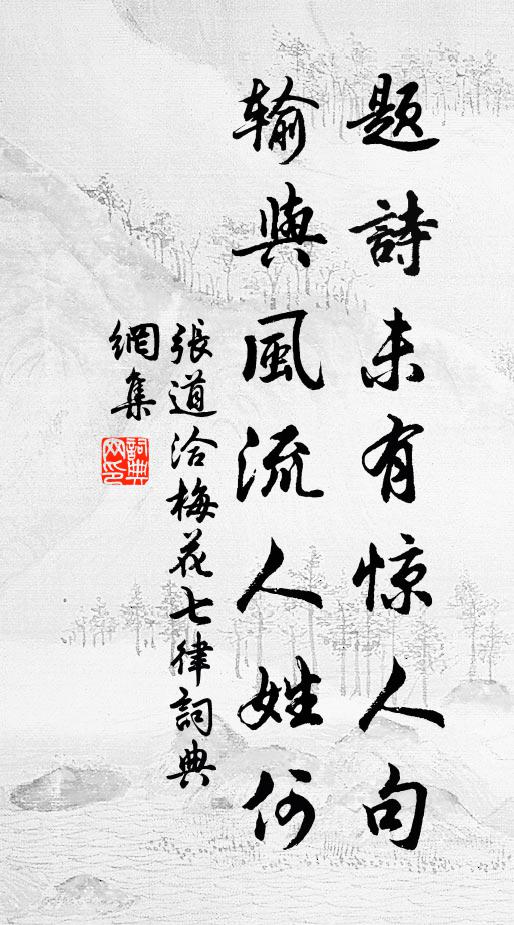 題詩未有惊人句
輸與風流人姓何
張道洽梅花七律詞典
網集
詞典
网印